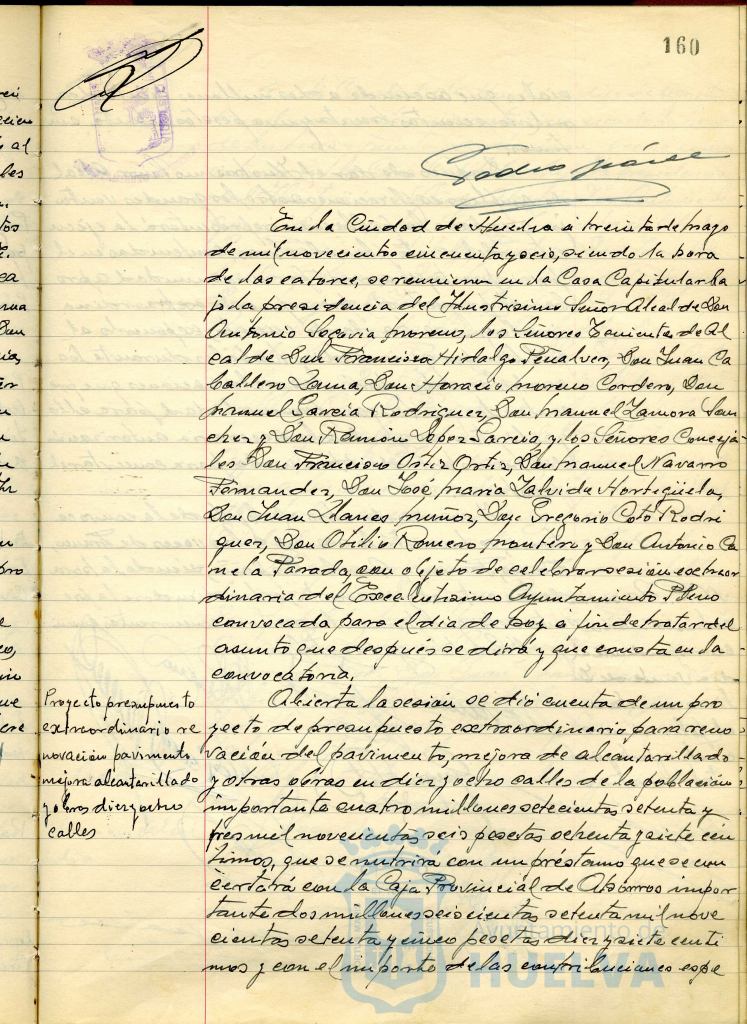 160
Pedro
En la Ciudad de Huelva á treinta de mayo
de mil novecientos cincuenta y ocio, siendo la hora
de las catorce, se reunieron en la Casa Capitular ba
jo la presidencia del Ilustrisimo Señor Alcalde Don
Antonio Segovia Moreno, los Señores Tenientes de Al
calde Don Francisco Hidalgo Peñalver, Don Juan Ca
ballero Lama, Don Horacio Moreno Cordero, Don
Manuel Garcia Rodriguez, Don Manuel Zamora San
chez y Don Ramón López Garcia, y los Señores Conceja
les Don Francisco Ortiz Ortiz, Don Manuel Navarro
Fernandez, Don José Maria Zalvide Hortigüela,
Don Juan Llanes Muñoz, Don Gregorio Coto Rodri
guez, Don Otilio Romero Montero y Don Antonio Ca
nela Parada, con objeto de celebrar sesión extraor
dinaria del Excelentisimo Ayuntamiento Pleno
convocada para el dia de hoy á fin de tratar del
asunto que después se dirá y que consta en la
convocatoria.
Proyecto presupuesto
extraordinario re
novación pavimento
mejora alcantarillado
y obras diez y ocho
calles
Abierta la sesión se dió cuenta de un pro
yecto de presupuesto extraordinario para reno
vación del pavimento, mejora de alcantarillado
y otras obras en diez y ocho calles de la población
importante cuatro millones setecientas setenta y
tres mil novecientas seis pesetas ochenta y siete cén
timos, que se nutrirá con un préstamo que se con
certará con la Caja Provincial de Ahorros impor
tante dos millones seiscientas setenta mil nove
cientas setenta y cinco pesetas diez y siete centi
mos y con el importe de las contribuciones espe
Ayuntamiento de
HUELVA